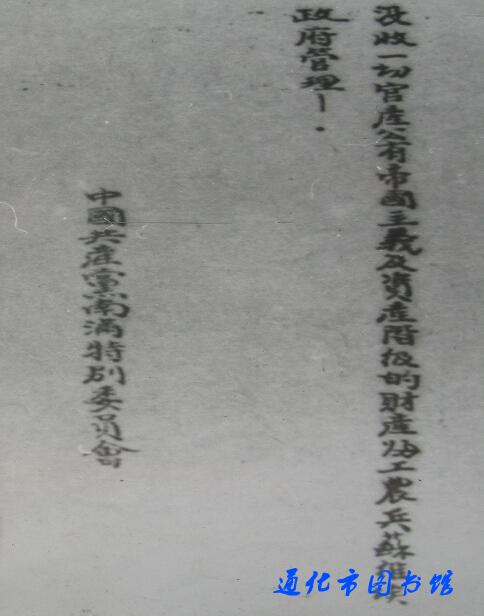 没收一切官產公有帝國主義及資產階級的財產归工農兵蘇維埃
政府管理！
中國共產黨南滿特别委員會
通化市图书馆